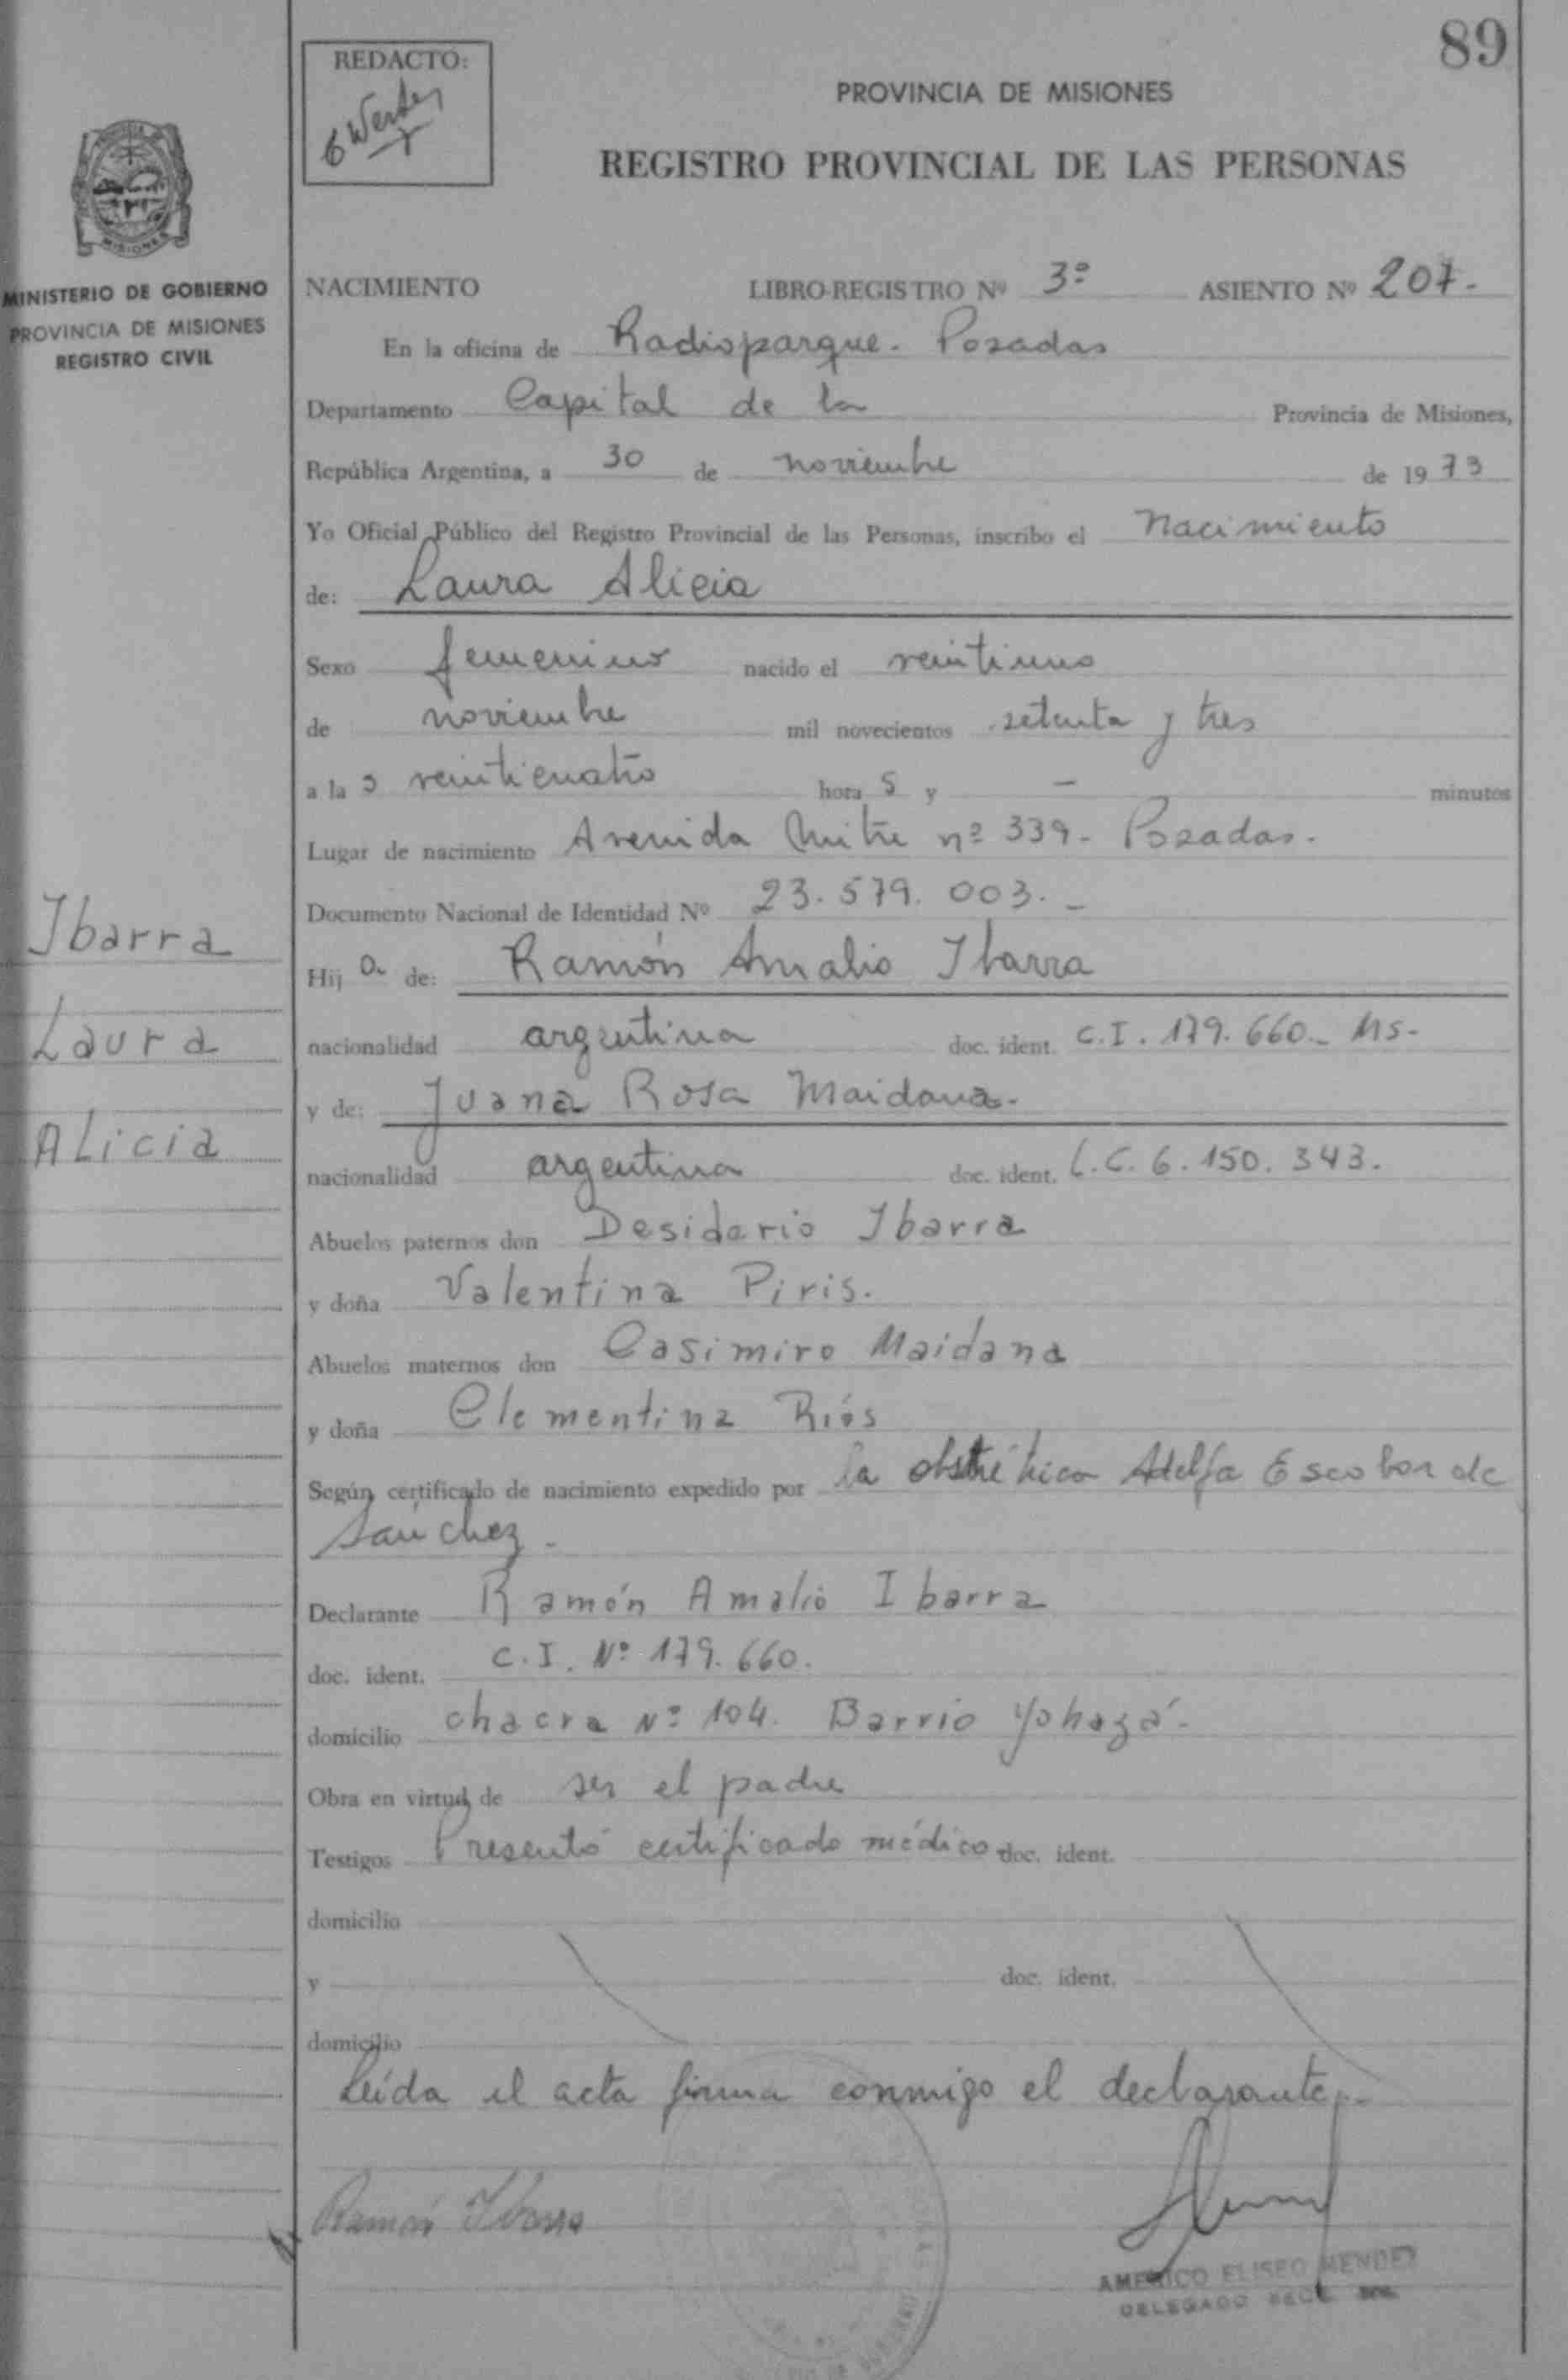 89
REDACTO:
PROVINCIA DE MISIONES
REGISTRO PROVINCIAL DE LAS PERSONAS
MISIONES
MINISTERIO DE GOBIERNO
PROVINCIA DE MISIONES
REGISTRO CIVIL
NACIMIENTO LIBRO-REGISTRO Nº 3º ASIENTO Nº 207.-
En la oficina de Radioparque. Posadas
Departamento Capital de la Provincia de Misiones,
República Argentina, a 30 de noviembre de 1973
Yo Oficial Público del Registro Provincial de las Personas, inscribo el Nacimiento
de: Laura Alicia
Sexo femenino nacido el veintiuno
de noviembre mil novecientos setenta y tres
a la s veinticuatro hora s y — minutos
Lugar de nacimiento Avenida Mitre nº 339- Posadas.
Documento Nacional de Identidad Nº 23.579.003.-
Hij a de: Ramón Amalio Ibarra
nacionalidad argentina doc. ident. C.I. 179.660.- Ms-
y de: Juana Rosa Maidana.
nacionalidad argentina doc. ident. L.C. 6.150.343.
Abuelos paternos don Desiderio Ibarra
y doña Valentina Piris.
Abuelos maternos don Casimiro Maidana
y doña Clementina Ríos
Según certificado de nacimiento expedido por la obstétrica Adelfa Escobar de
Sánchez.-
Declarante Ramón Amalio Ibarra
doc. ident. C.I. Nº 179.660.
domicilio chacra Nº 104. Barrio Yohazá-
Obra en virtud de ser el padre
Testigos Presentó certificado médico doc. ident.
domicilio
y doc. ident.
domicilio
Leída el acta firma conmigo el declarante.-
Ramón Ibarra
AMERICO ELISEO MENDEZ
DELEGADO
Ibarra
Laura
Alicia